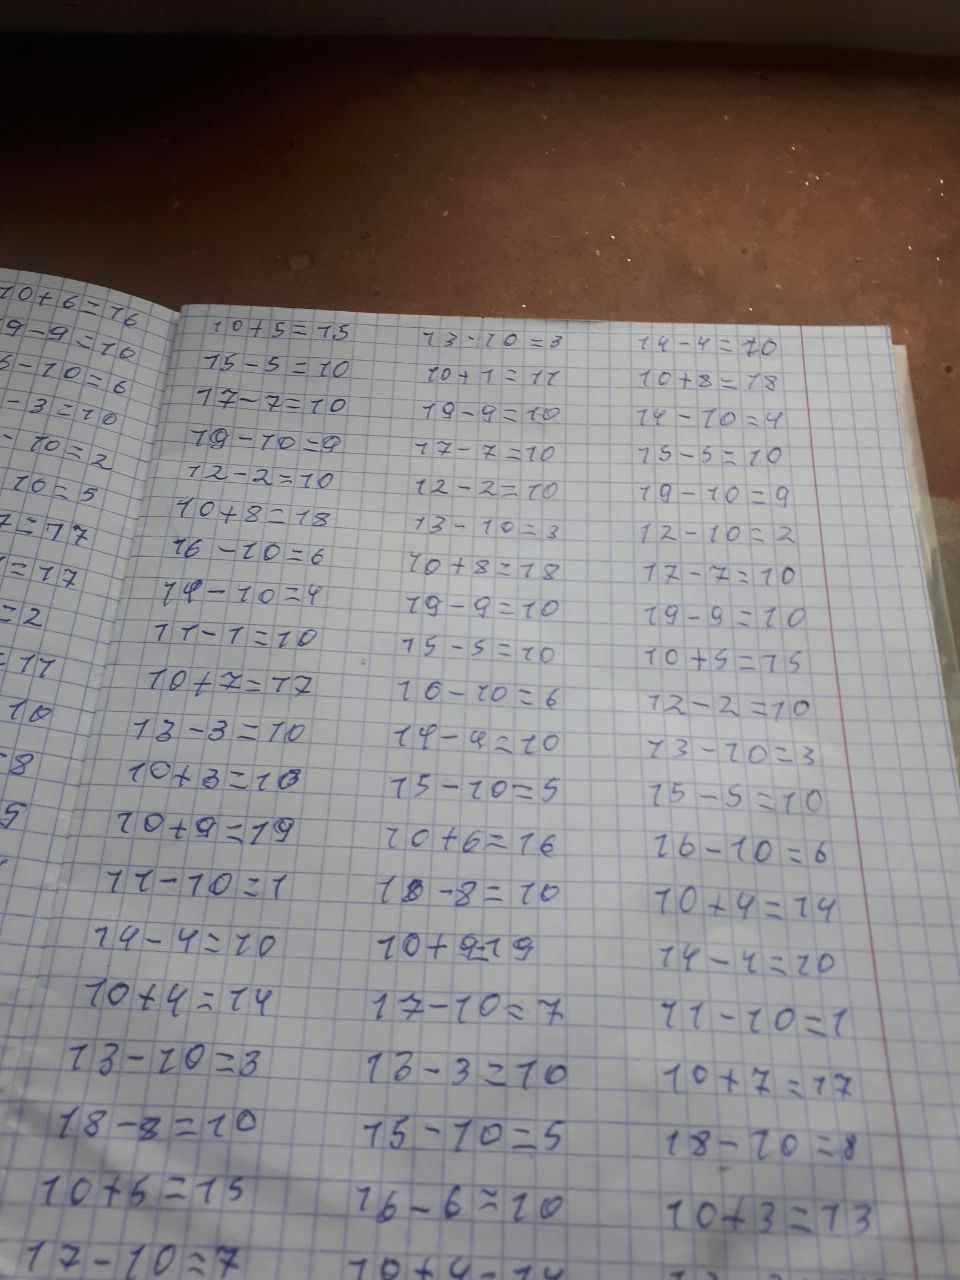 10+6=16
19-9=10
6-10=6
-3=10
-10=2
10=5
7=17
=17
=2
=11
10
-8
5
10+5=15
15-5=10
17-7=10
19-10=9
12-2=10
10+8=18
16-10=6
14-10=4
11-1=10
10+7=17
13-3=10
10+3=13
10+9=19
11-10=1
14-4=10
10+4=14
13-10=3
18-8=10
10+5=15
17-10=7
13-10=3
10+1=11
19-9=10
17-7=10
12-2=10
13-10=3
10+8=18
19-9=10
15-5=10
16-10=6
14-4=10
15-10=5
10+6=16
18-8=10
10+9=19
17-10=7
13-3=10
15-10=5
16-6=10
10+4=14
14-4=10
10+8=18
14-10=4
15-5=10
19-10=9
12-10=2
17-7=10
19-9=10
10+5=15
12-2=10
13-10=3
15-5=10
16-10=6
10+4=14
14-4=10
11-10=1
10+7=17
18-10=8
10+3=13